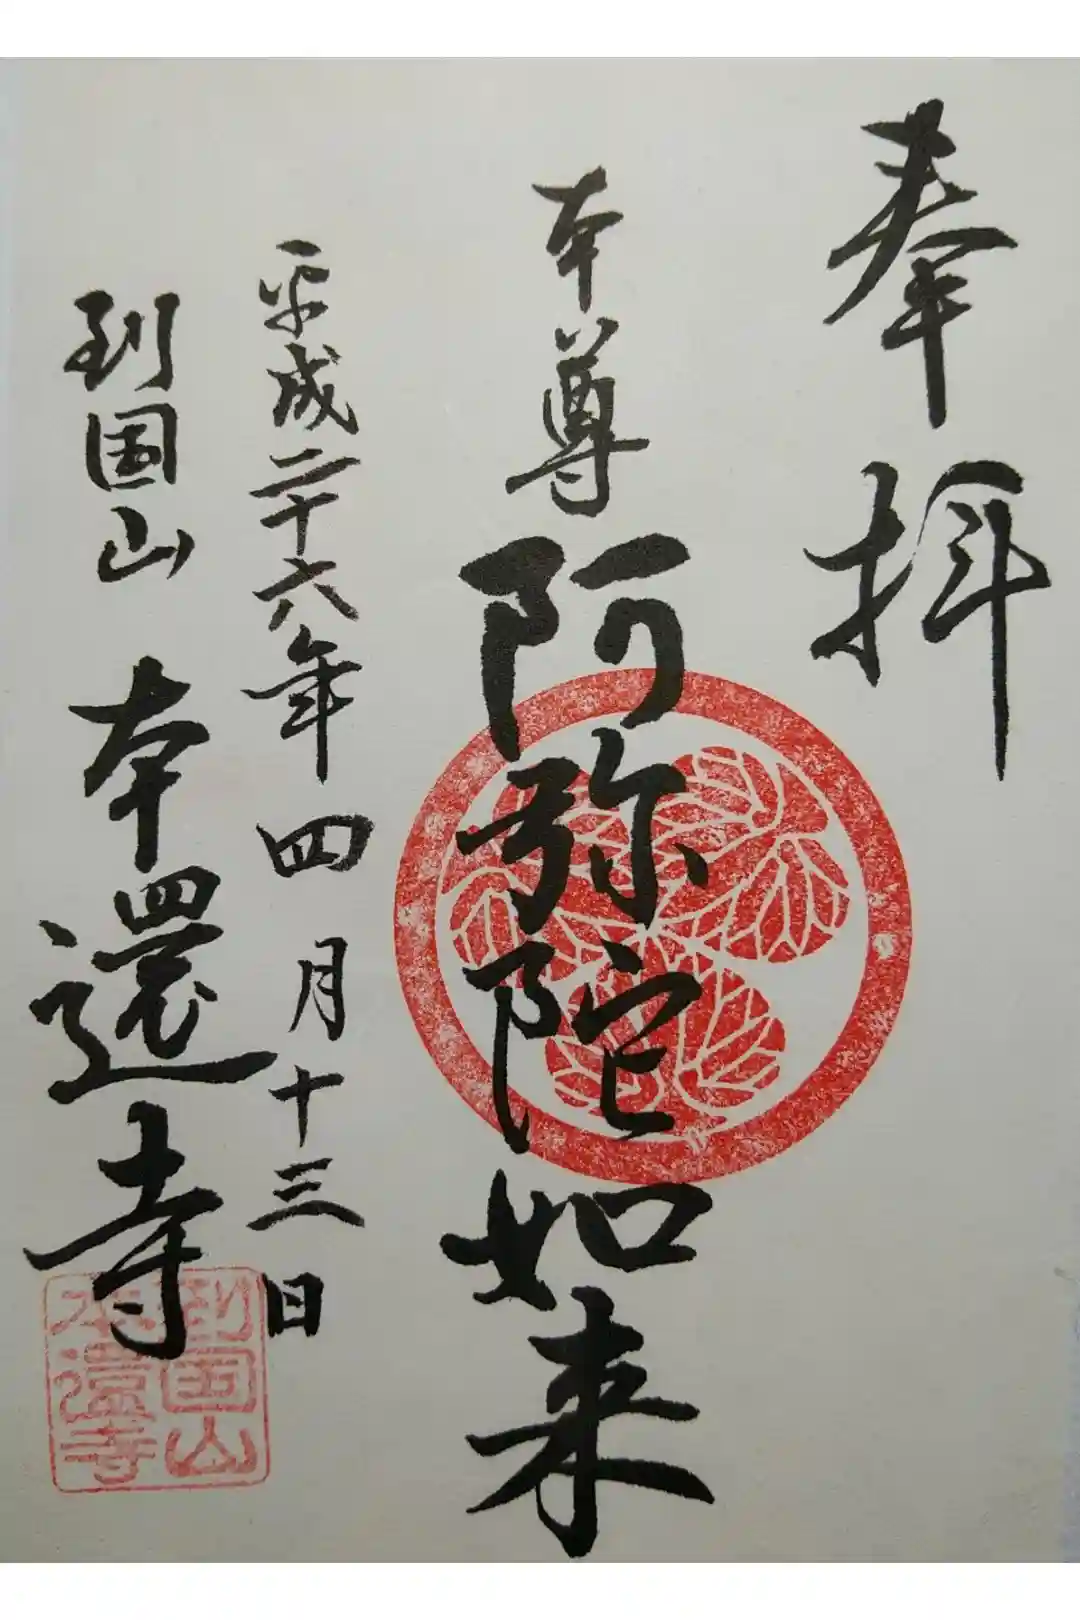 奉拝
本尊
阿弥陀如来
平成二十六年四月十三日
到国山 本還寺
到国山
本還寺